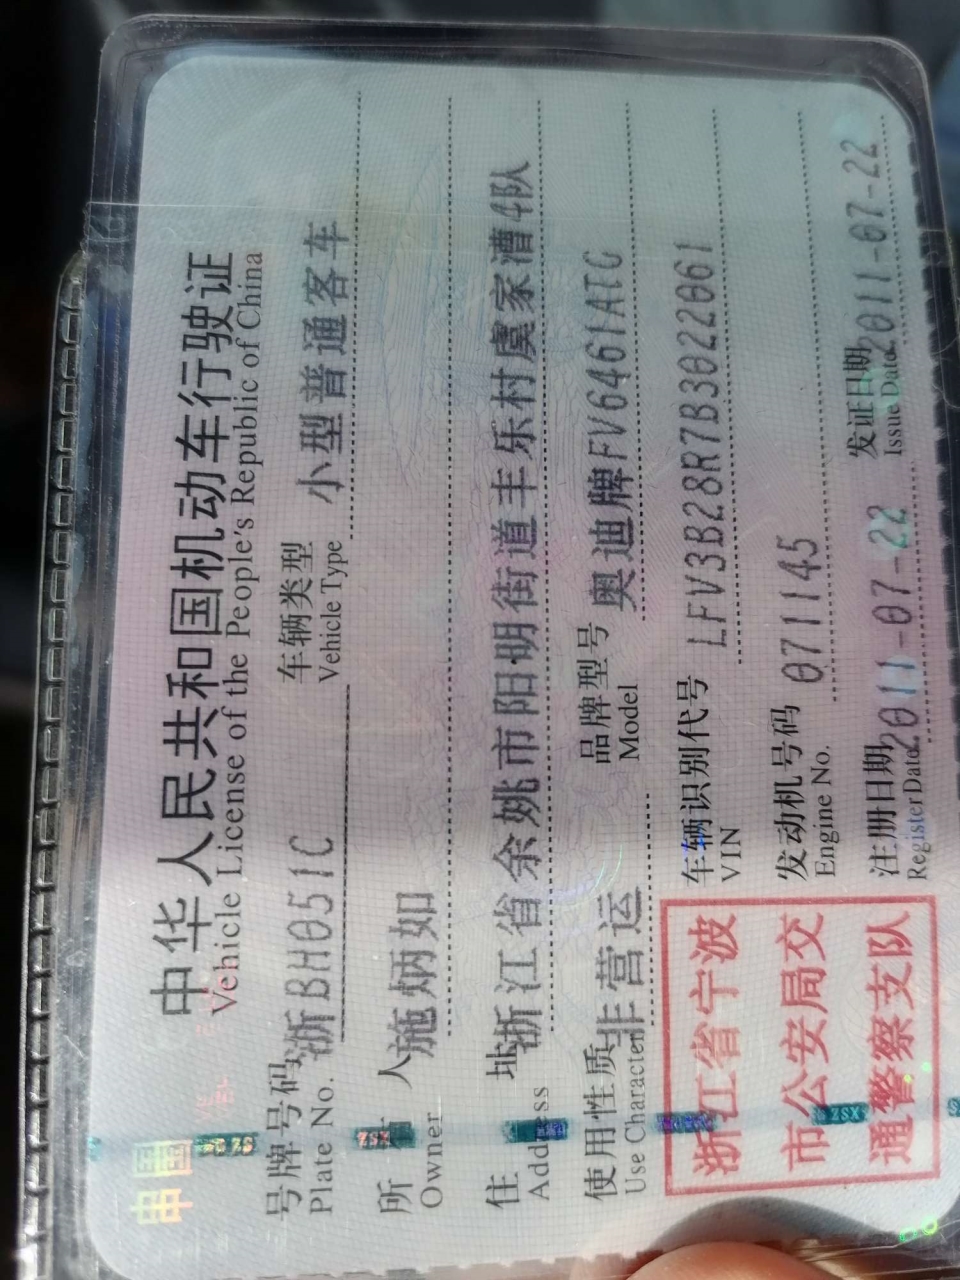 中华人民共和国机动车行驶证
Vehicle License of the People's Republic of China
号牌号码 浙BH051C 车辆类型 小型普通客车
Plate No. Vehicle Type
所 人 施炳如
Owner
住 址 浙江省余姚市阳明街道丰乐村虞家漕4队
Address
使用性质 非营运 品牌型号 奥迪牌FV6461ATG
Use Character Model
浙江省宁波
市公安局交
通警察支队
车辆识别代号 LFV3B28R7B3022061
VIN
发动机号码 0711145
Engine No.
注册日期 2011-07-22 发证日期 2011-07-22
Register Date Issue Date
中国
ZSX
ZSX